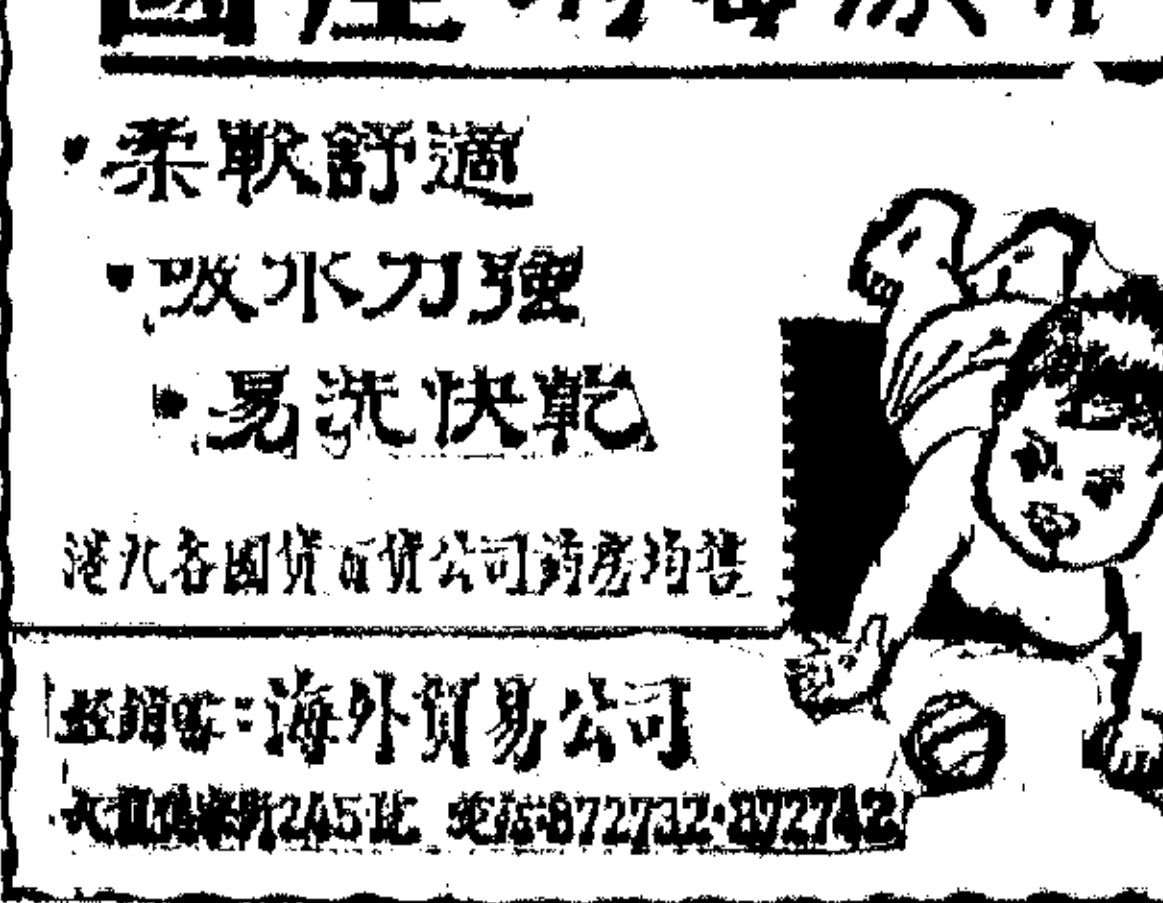 國產
・柔軟舒適
・吸水力強
・易洗快乾
港九各國貨百貨公司葯房均售
經銷處:海外貿易公司
245號 電話:872732・872742